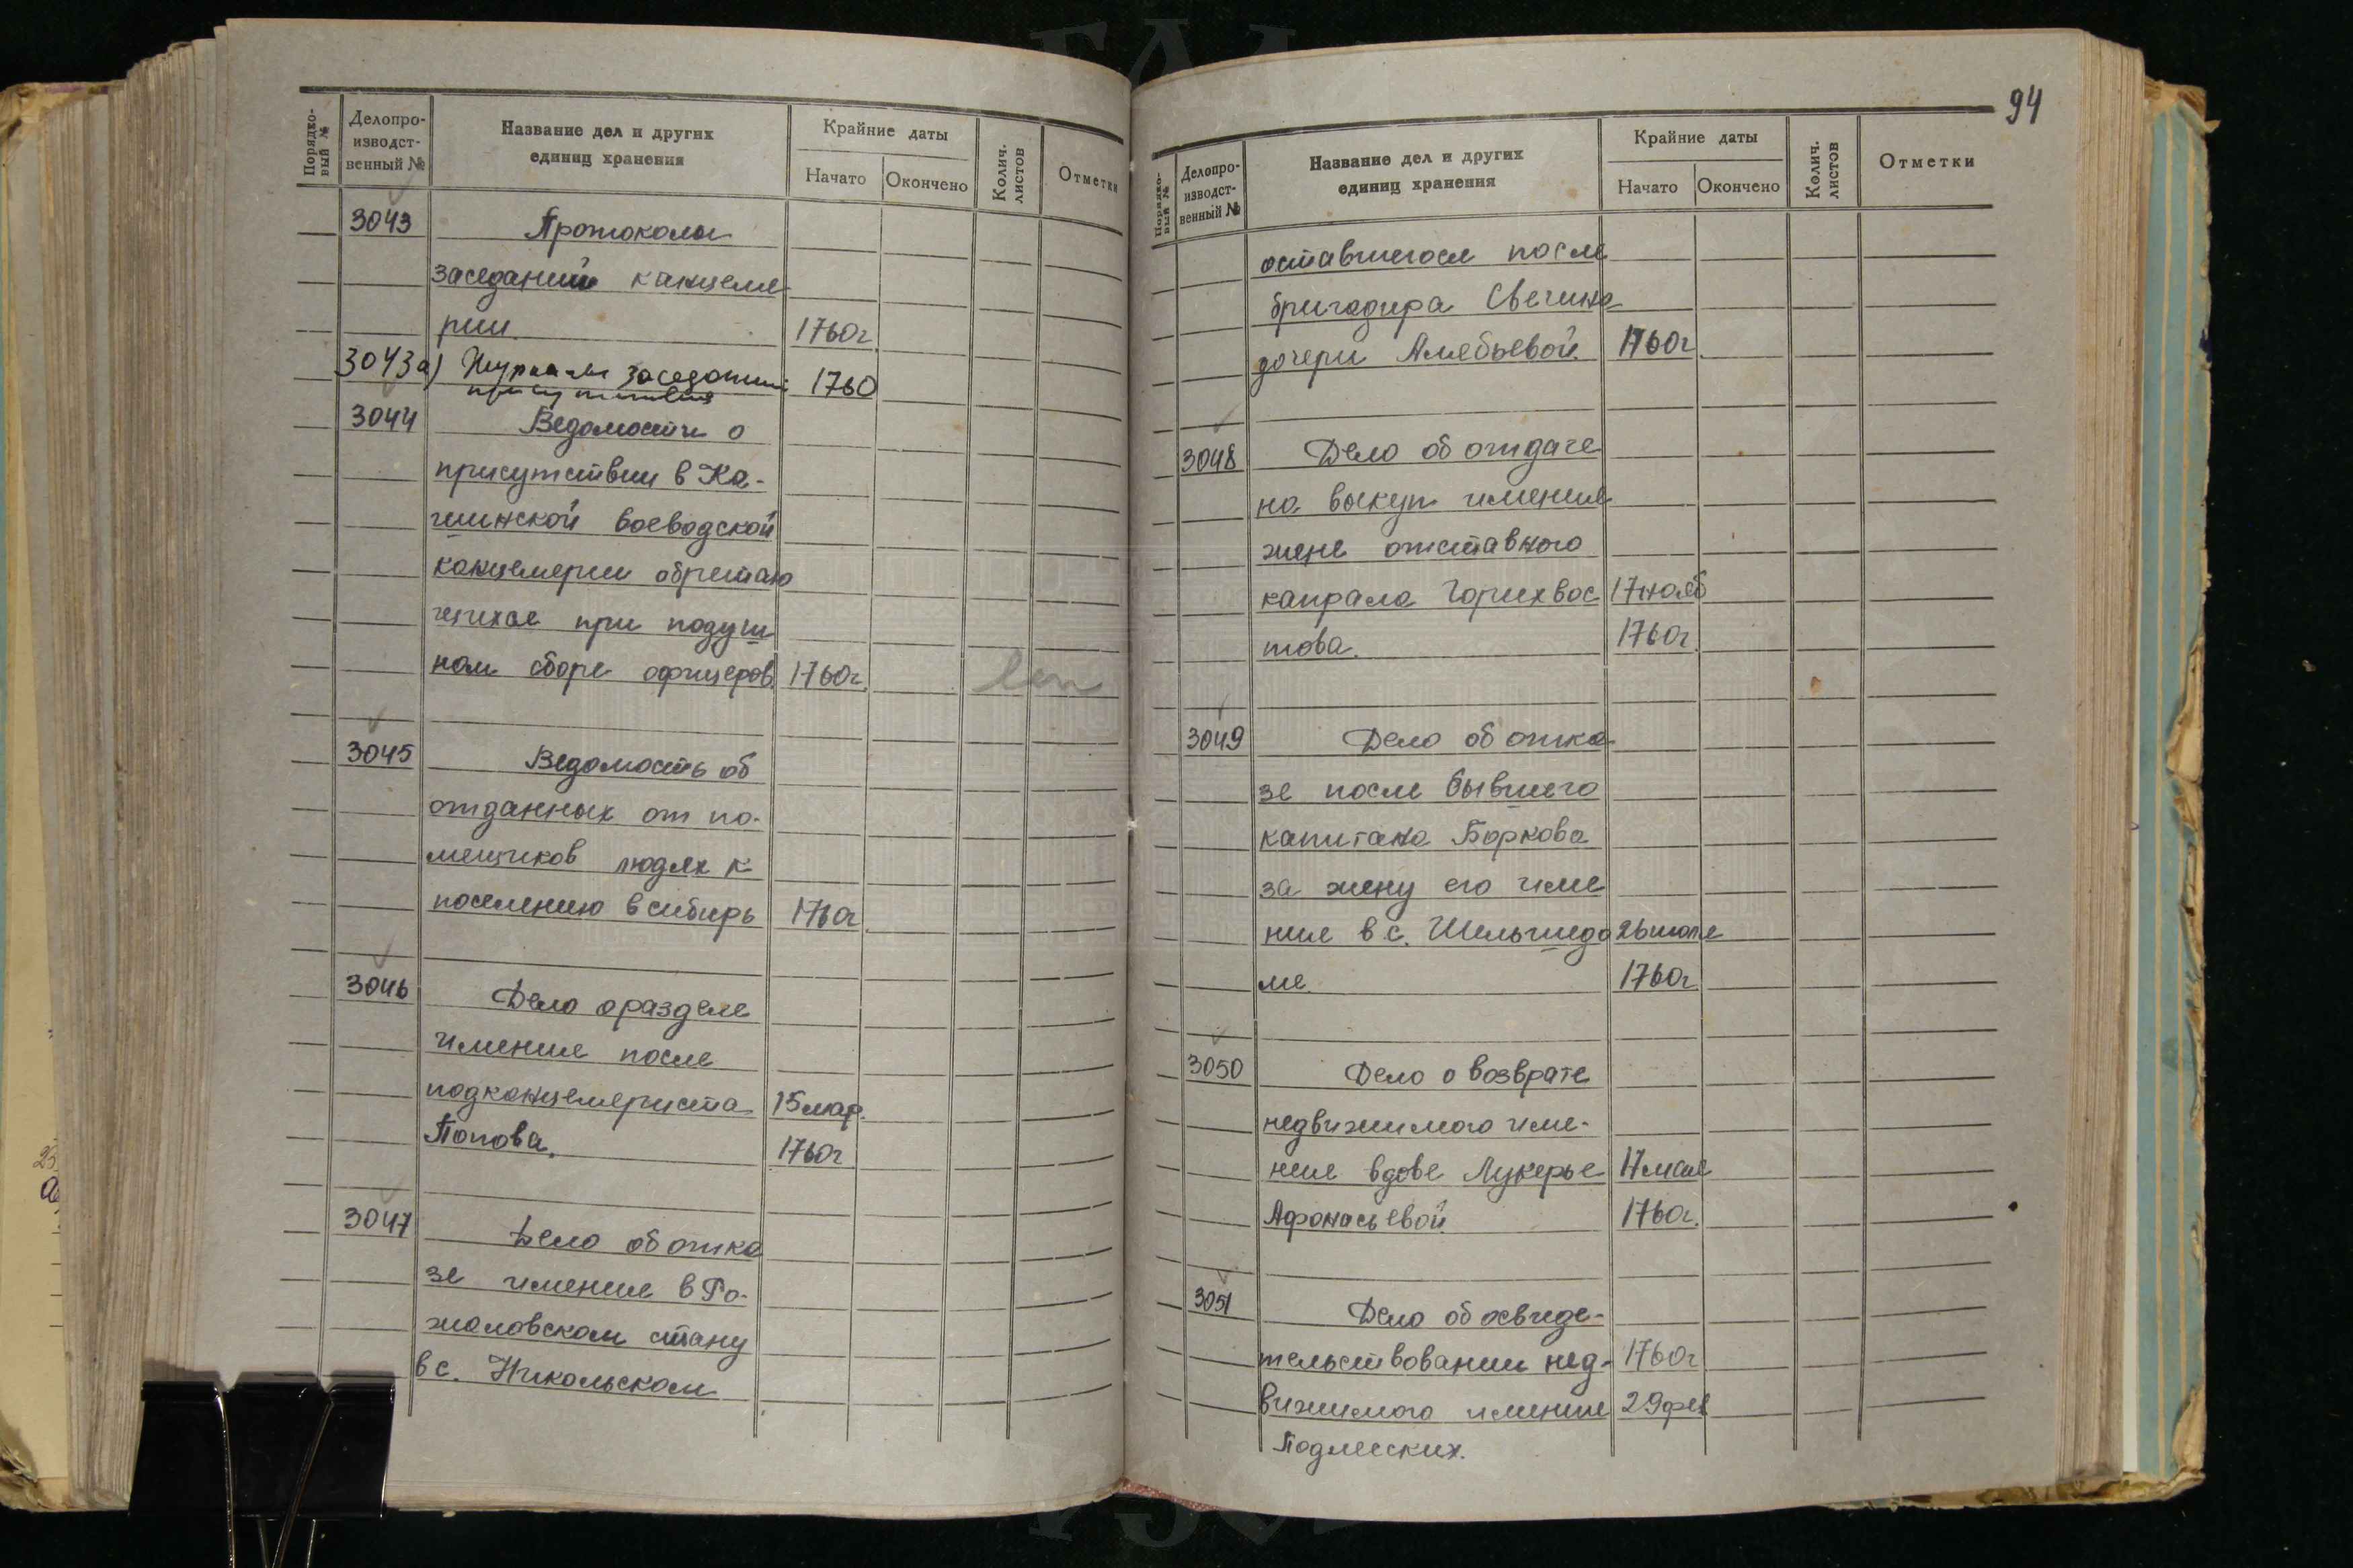 Порядко-
вый №
Делопро-
изводст-
венный №
Название дел и других
единиц хранения
Крайние даты
Начато
Окончено
Колич.
листов
Отметки
3043 Протоколы
заседаний канцеля-
рии. 1760г.
3043а) Журналы заседаний 1760
присутствия
3044 Ведомости о
присутствии в Ка-
шинской воеводской
канцелярии обретаю
щихся при подуш
ном сборе офицеров. 1760г.
3045 Ведомость об
отданных от по-
мещиков людях к
поселению в сибирь 1760г.
3046 Дело о разделе
имения после
подканцеляриста 15 мар.
Попова. 1760г
3047 Дело об отка
зе имения в Го-
жаловском стану
в с. Никольском
94
Порядко-
вый №
Делопро-
изводст-
венный №
Название дел и других
единиц хранения
Крайние даты
Начато
Окончено
Колич.
листов
Отметки
оставшегося после
бригадира Свечина
дочери Алябьевой. 1760г.
3048 Дело об отдаче
на выкуп имения
жене отставного
капрала Горихвос 17 нояб
това. 1760г.
3049 Дело об отка-
зе после бывшего
капитана Боркова
за жену его име
ния в с. Шельшедо 26 июля
ме. 1760г.
3050 Дело о возврате
недвижимого име-
ния вдове Лукерье 17 мая
Афонасьевой. 1760г.
3051 Дело об освиде-
тельствовании нед- 1760г
вижимого имения 29 фев
Подлесских.